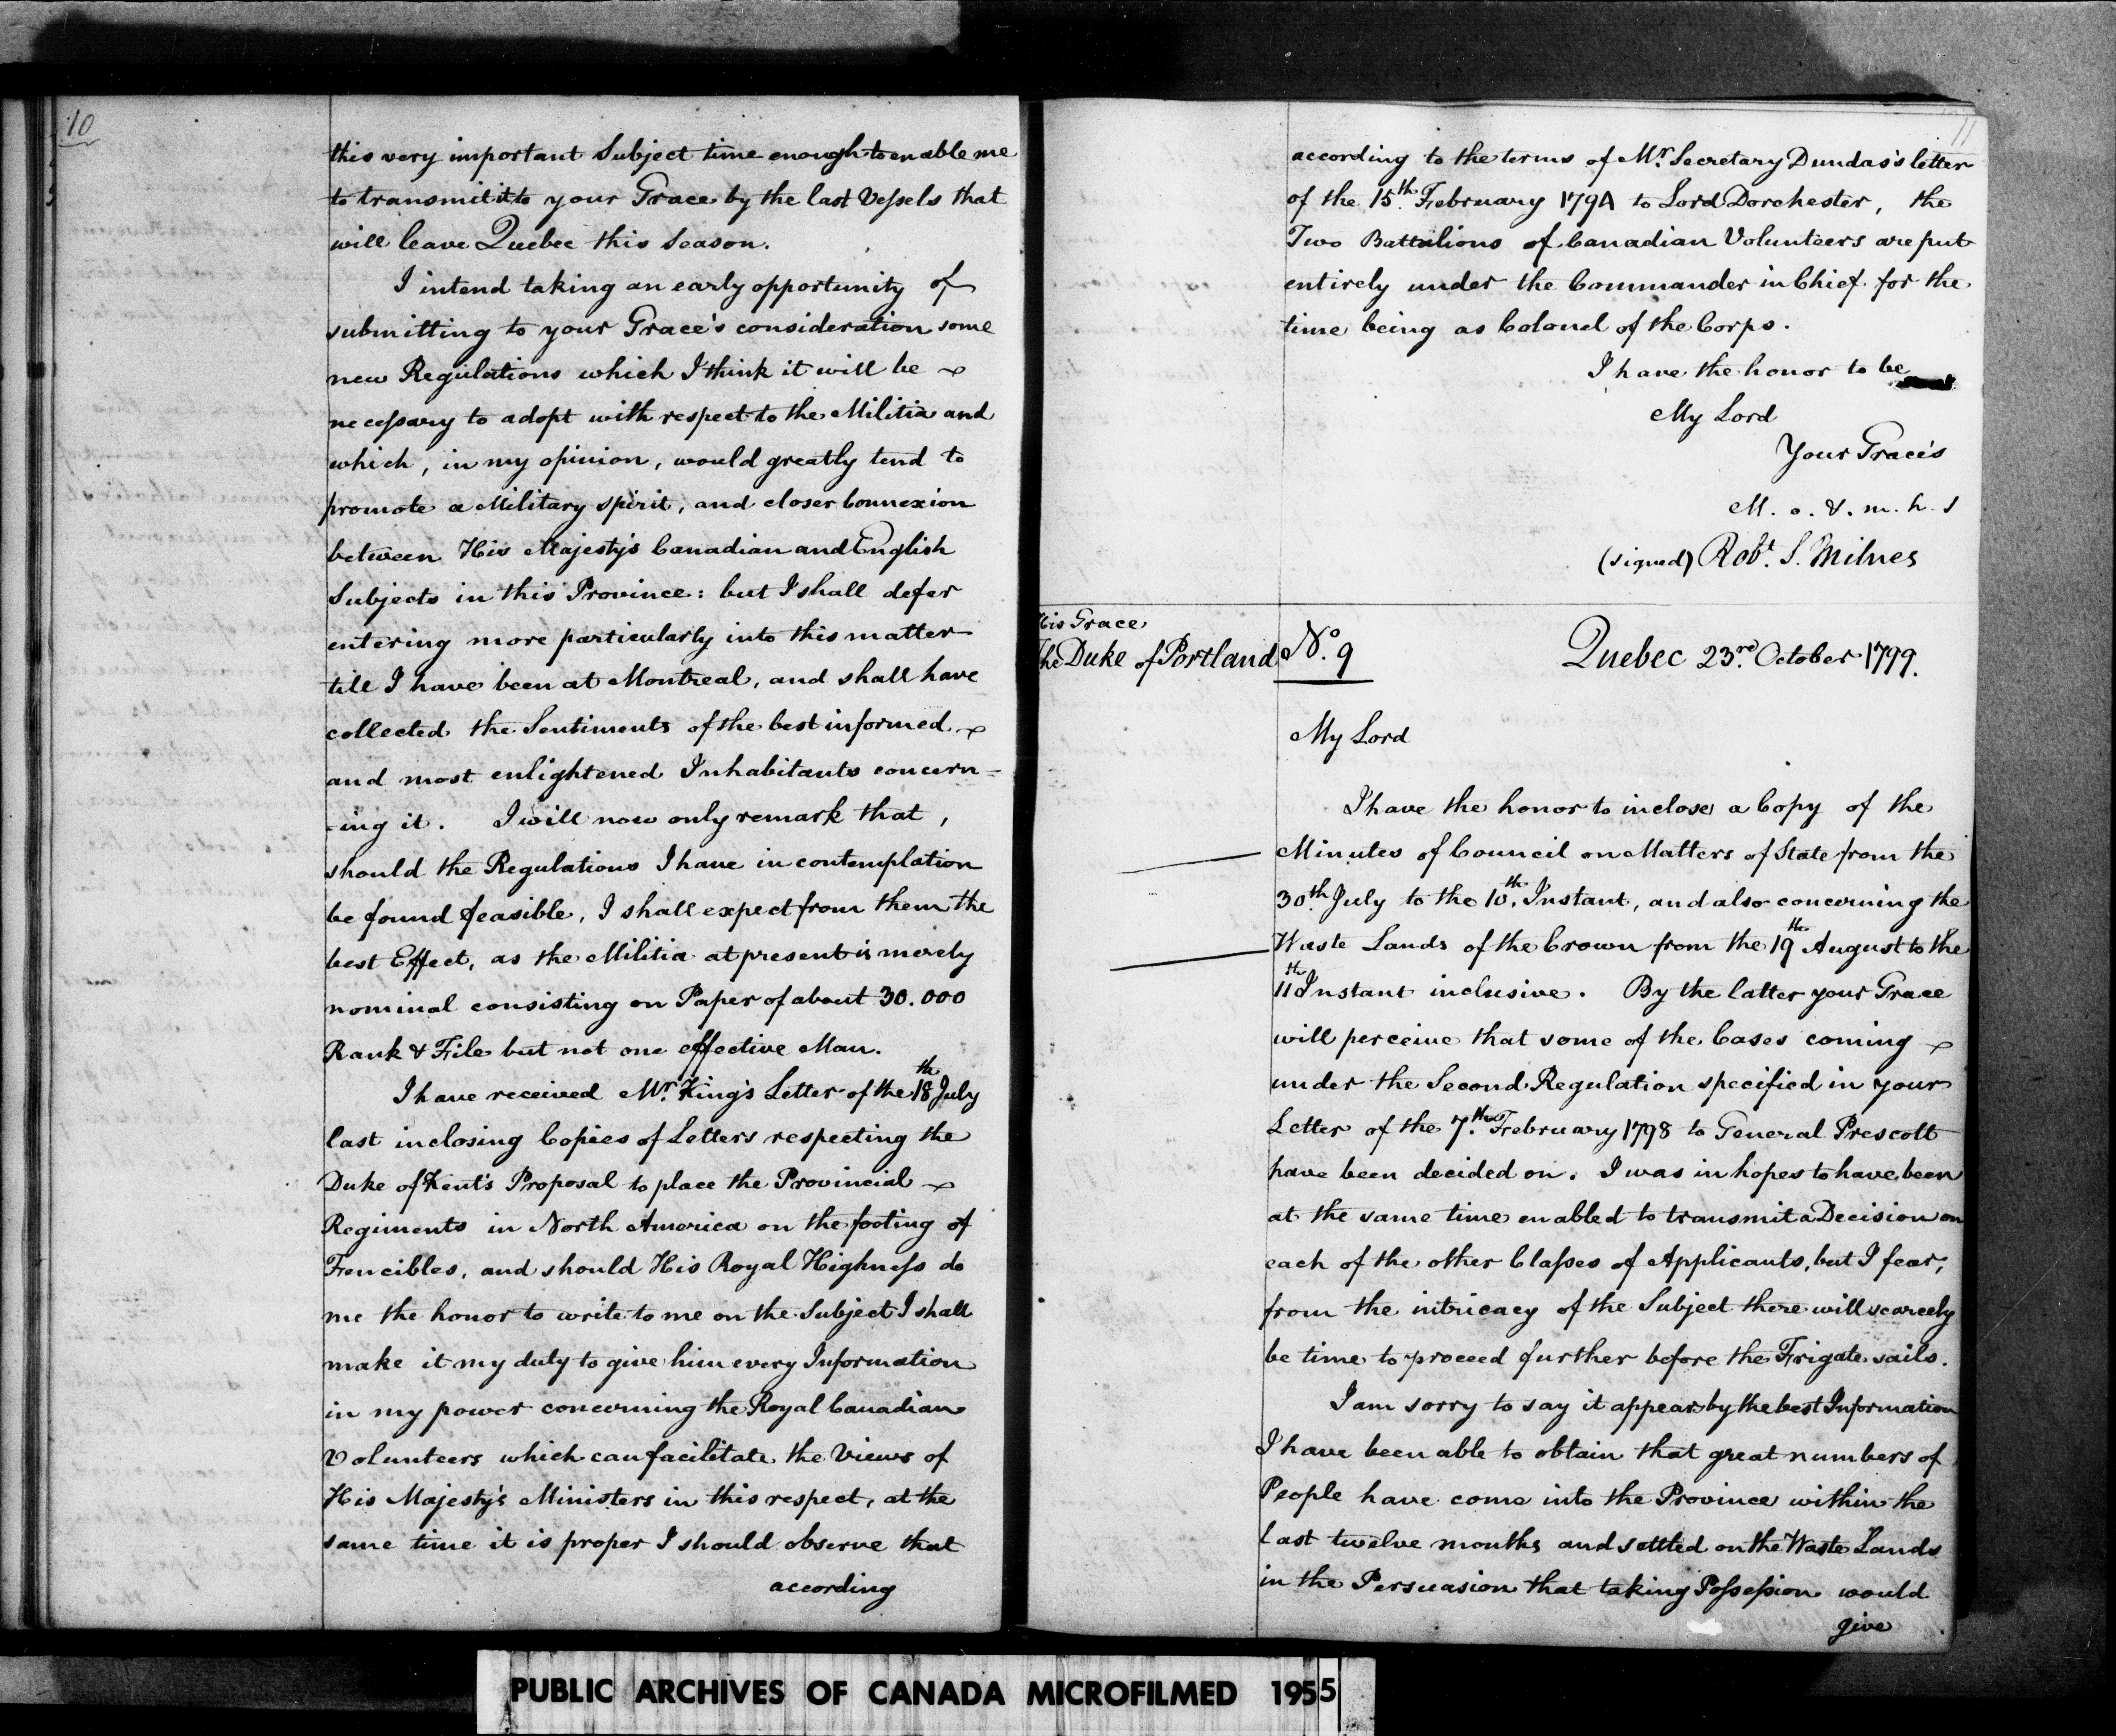 10
this very important Subject time enough to enable me
to transmit it to your Grace by the last Vessels that
will leave Quebec this Season.
I intend taking an early opportunity of
submitting to your Grace's consideration some
new Regulations which I think it will be
necessary to adopt with respect to the Militia and
which, in my opinion, would greatly tend to
promote a Military spirit, and closer Connexion
between His Majesty's Canadian and English
Subjects in this Province: but I shall defer
entering more particularly into this matter
till I have been at Montreal, and shall have
collected the Sentiments of the best informed
and most enlightened Inhabitants concern=
-ing it. I will now only remark that,
should the Regulations I have in contemplation
be found feasible, I shall expect from them the
best Effect, as the Militia at present is merely
nominal consisting on Paper of about 30.000
Rank & File but not one effective Man.
I have received Mr. King's Letter of the 18th July
last inclosing Copies of Letters respecting the
Duke of Kent's Proposal to place the Provincial
Regiments in North America on the footing of
Fencibles, and should His Royal Highness do
me the honor to write to me on the Subject I shall
make it my duty to give him every Information
in my power concerning the Royal Canadian
Volunteers which can facilitate the Views of
His Majesty's Ministers in this respect, at the
same time it is proper I should observe that
according
11
according to the terms of Mr. Secretary Dundas's letter
of the 15th. February 1794 to Lord Dorchester, the
Two Battalions of Canadian Volunteers are put
entirely under the Commander in Chief for the
time being as Colonel of the Corps.
I have the honor to be
My Lord
Your Grace's
M. o. & m. h. s
(signed) Robt. S. Milnes
His Grace
The Duke of Portland
No. 9
Quebec 23rd. October 1799.
My Lord
I have the honor to inclose a Copy of the
Minutes of Council on Matters of State from the
30th. July to the 10th. Instant, and also concerning the
Waste Lands of the Crown from the 19th August to the
11th Instant inclusive. By the latter your Grace
will perceive that some of the Cases coming
under the Second Regulation specified in your
Letter of the 7th. February 1798 to General Prescott
have been decided on. I was in hopes to have been
at the same time enabled to transmit a Decision on
each of the other Classes of Applicants, but I fear,
from the intricacy of the Subject there will scarcely
be time to proceed further before the Frigate sails.
I am sorry to say it appears by the best Information
I have been able to obtain that great numbers of
People have come into the Province within the
last twelve months and settled on the Waste Lands
in the Persuasion that taking Possession would
give
PUBLIC ARCHIVES OF CANADA MICROFILMED 1955